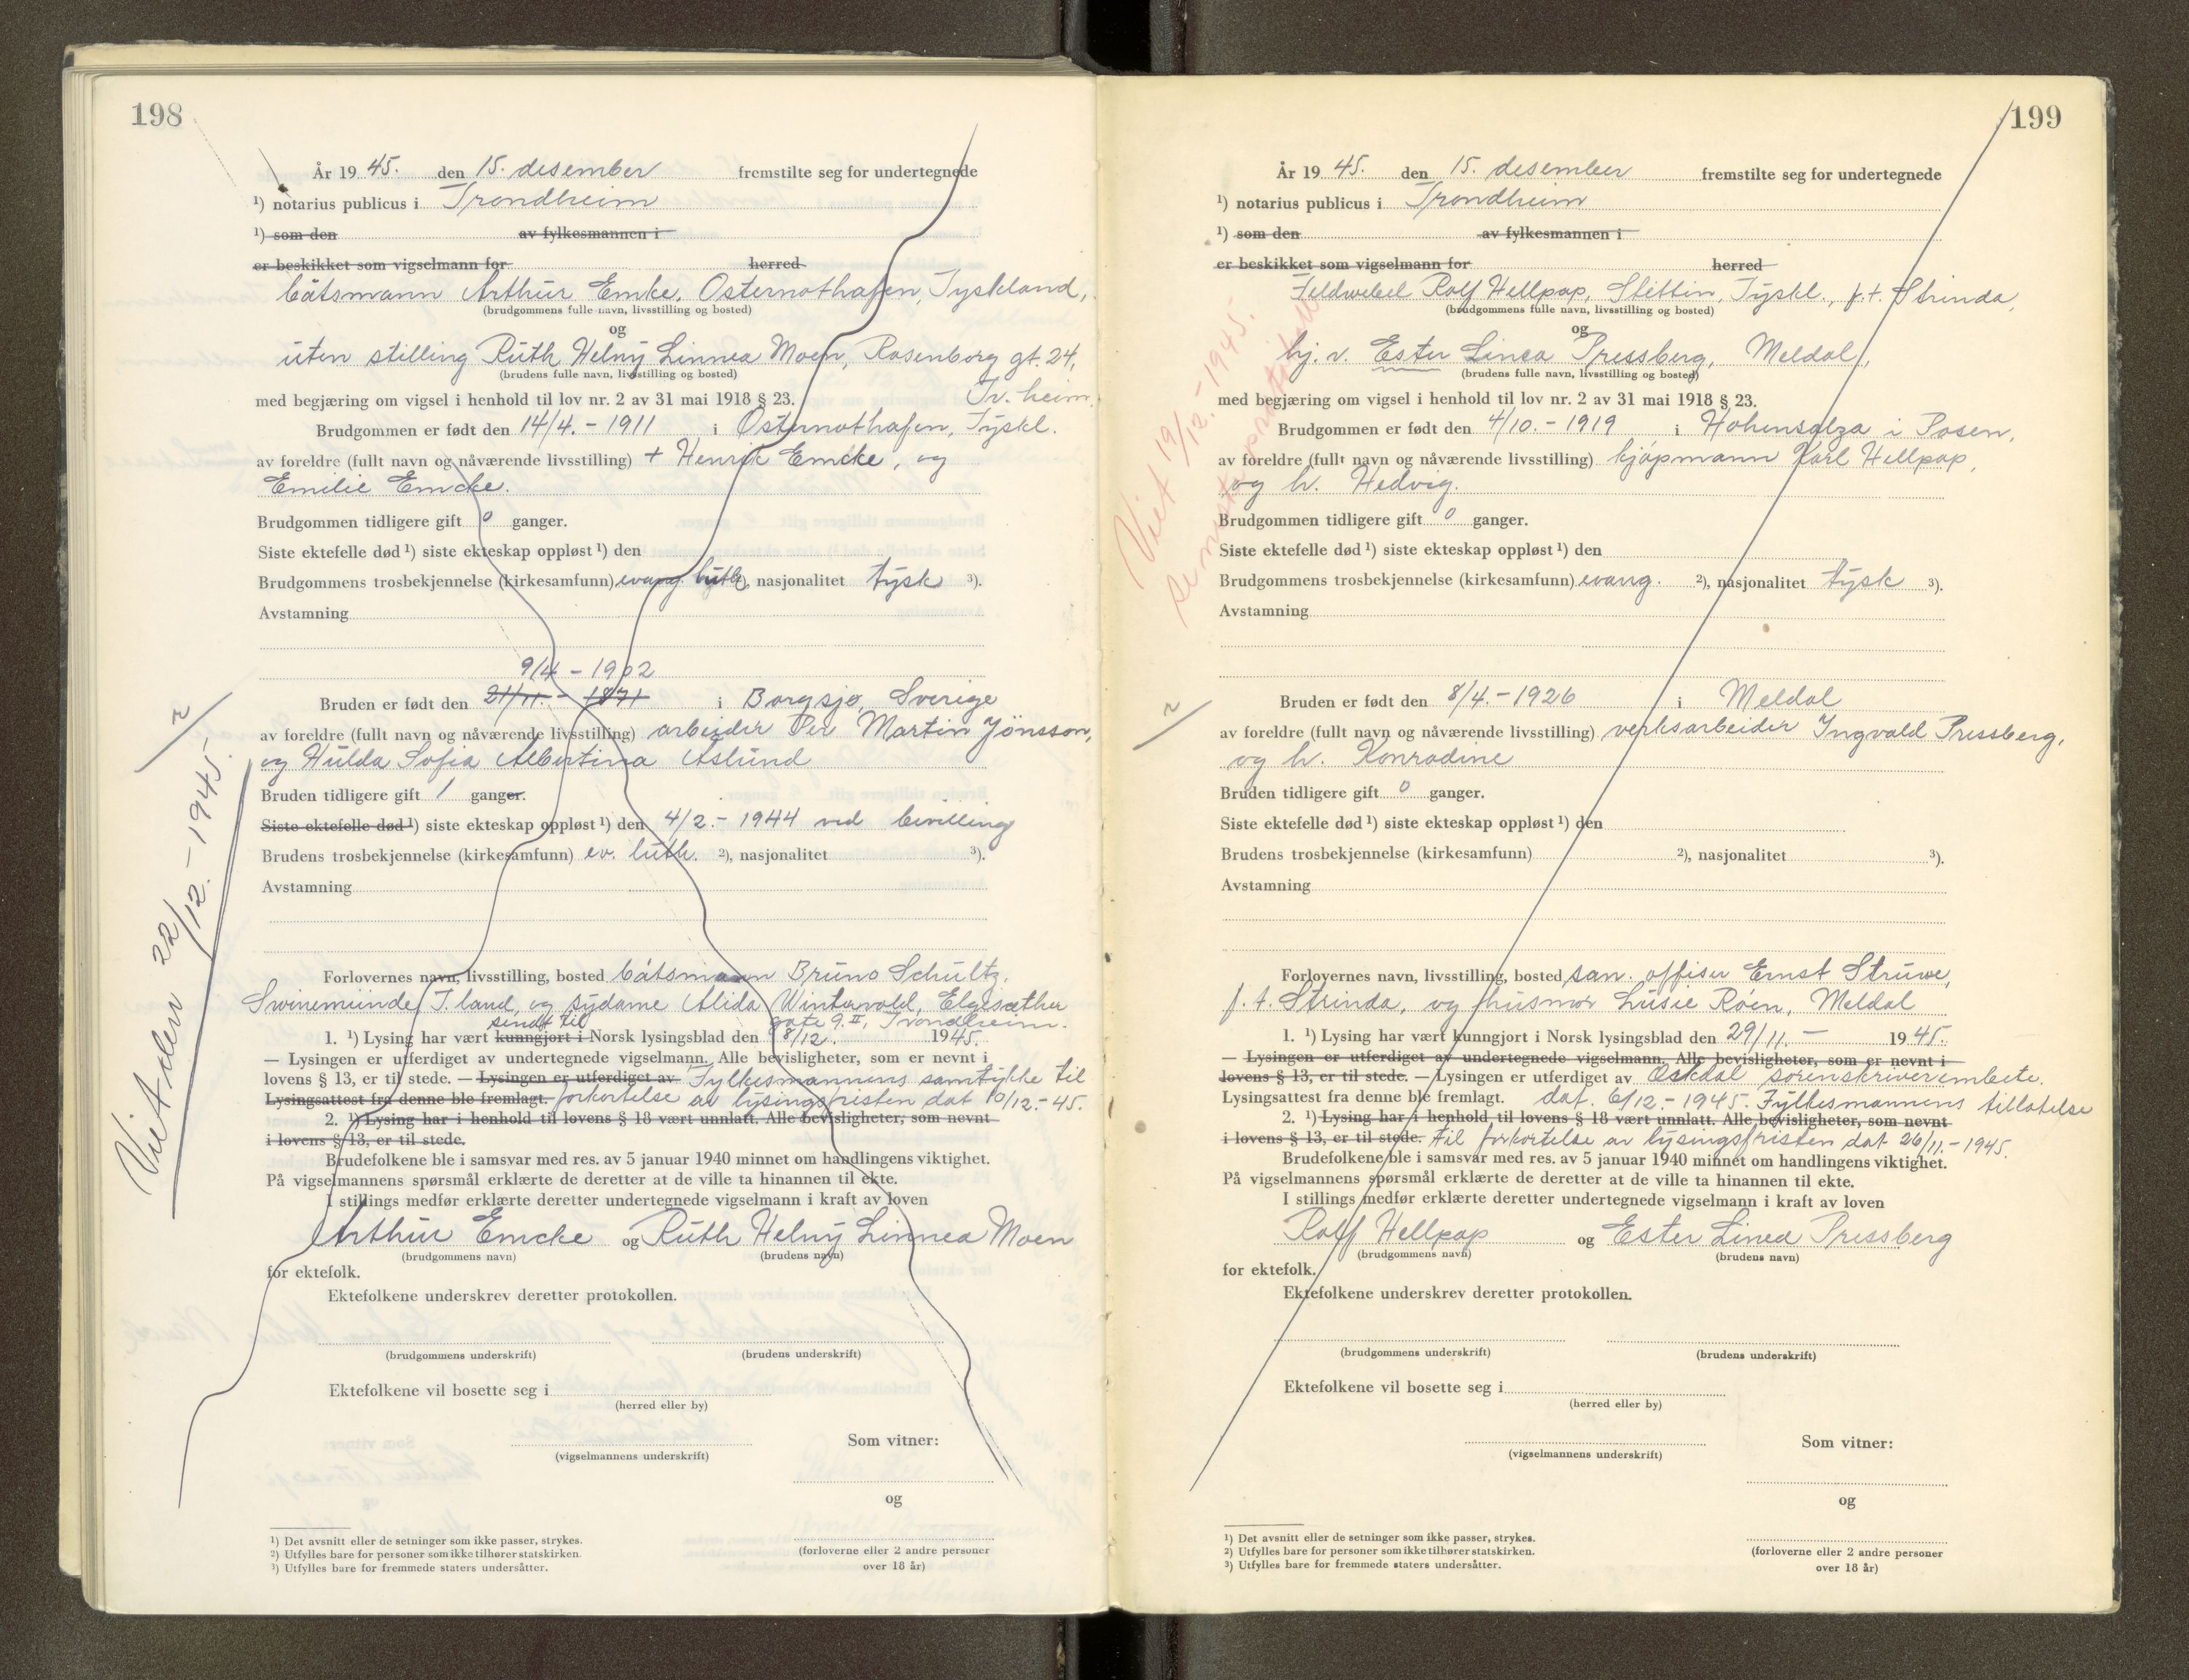 198
År 19 45. den 15. desember fremstilte seg for undertegnede
¹) notarius publicus i Trondheim
¹) som den av fylkesmannen i
er beskikket som vigselmann for herred
båtsmann Arthur Emke, Osternothafen, Tyskland,
(brudgommens fulle navn, livsstilling og bosted)
og
uten stilling Ruth Helny Linnea Moen, Rosenborg gt. 24,
(brudens fulle navn, livsstilling og bosted)
Tr.heim.
med begjæring om vigsel i henhold til lov nr. 2 av 31 mai 1918 § 23.
Brudgommen er født den 14/4. - 1911 i Osternothafen, Tyskl.
av foreldre (fullt navn og nåværende livsstilling) + Henrik Emcke, og
Emilie Emcke.
Brudgommen tidligere gift 0 ganger.
Siste ektefelle død ¹) siste ekteskap oppløst ¹) den
Brudgommens trosbekjennelse (kirkesamfunn) evang. luth. ²), nasjonalitet tysk ³).
Avstamning
9/4 - 1902
Bruden er født den 21/11. - 1871 i Borgsjø, Sverige
av foreldre (fullt navn og nåværende livsstilling) arbeider Per Martin Jönsson,
og Hulda Sofia Albertina Åslund
Bruden tidligere gift 1 ganger.
Siste ektefelle død ¹) siste ekteskap oppløst ¹) den 4/2. - 1944 ved bevilling
Brudens trosbekjennelse (kirkesamfunn) ev. luth. ²), nasjonalitet ³).
Avstamning
Forlovernes navn, livsstilling, bosted båtsmann Bruno Schultz,
Swinemünde, T.land, og sydame Alida Wintervold, Elgesæther
sendt til gate 9.II, Trondheim.
1. ¹) Lysing har vært kunngjort i Norsk lysingsblad den 8/12. 1945.
— Lysingen er utferdiget av undertegnede vigselmann. Alle bevisligheter, som er nevnt i
lovens § 13, er til stede. — Lysingen er utferdiget av Fylkesmannens samtykke til
Lysingsattest fra denne ble fremlagt. forkortelse av lysingsfristen dat 10/12.-45.
2. ¹) Lysing har i henhold til lovens § 18 vært unnlatt. Alle bevisligheter, som nevnt
i lovens § 13, er til stede.
Brudefolkene ble i samsvar med res. av 5 januar 1940 minnet om handlingens viktighet.
På vigselmannens spørsmål erklærte de deretter at de ville ta hinannen til ekte.
I stillings medfør erklærte deretter undertegnede vigselmann i kraft av loven
Arthur Emcke og Ruth Helny Linnea Moen
(brudgommens navn) (brudens navn)
for ektefolk.
Ektefolkene underskrev deretter protokollen.
(brudgommens underskrift) (brudens underskrift)
Ektefolkene vil bosette seg i
(herred eller by)
Som vitner:
(vigselmannens underskrift)
og
(forloverne eller 2 andre personer
over 18 år)
¹) Det avsnitt eller de setninger som ikke passer, strykes.
²) Utfylles bare for personer som ikke tilhører statskirken.
³) Utfylles bare for fremmede staters undersåtter.
Viet den 22/12. - 1945.
199
År 19 45. den 15. desember fremstilte seg for undertegnede
¹) notarius publicus i Trondheim
¹) som den av fylkesmannen i
er beskikket som vigselmann for herred
Feldwebel Rolf Hellpap, Stettin, Tyskl., f.t. Strinda,
(brudgommens fulle navn, livsstilling og bosted)
og
hj. v. Ester Linea Pressberg, Meldal,
(brudens fulle navn, livsstilling og bosted)
med begjæring om vigsel i henhold til lov nr. 2 av 31 mai 1918 § 23.
Brudgommen er født den 4/10. - 1919 i Hohensalza i Posen,
av foreldre (fullt navn og nåværende livsstilling) kjøpmann Karl Hellpap,
og h. Hedvig.
Brudgommen tidligere gift 0 ganger.
Siste ektefelle død ¹) siste ekteskap oppløst ¹) den
Brudgommens trosbekjennelse (kirkesamfunn) evang. ²), nasjonalitet tysk ³).
Avstamning
Bruden er født den 8/4. - 1926 i Meldal
av foreldre (fullt navn og nåværende livsstilling) verksarbeider Ingvald Pressberg,
og h. Konradine
Bruden tidligere gift 0 ganger.
Siste ektefelle død ¹) siste ekteskap oppløst ¹) den
Brudens trosbekjennelse (kirkesamfunn) ²), nasjonalitet ³).
Avstamning
Forlovernes navn, livsstilling, bosted san. offiser Ernst Struwe,
f. t. Strinda, og husmor Lusie Røen, Meldal
1. ¹) Lysing har vært kunngjort i Norsk lysingsblad den 29/11. - 1945.
— Lysingen er utferdiget av undertegnede vigselmann. Alle bevisligheter, som er nevnt i
lovens § 13, er til stede. — Lysingen er utferdiget av Orkdal sorenskriverembete.
Lysingsattest fra denne ble fremlagt. dat. 6/12. - 1945. Fylkesmannens tillatelse
2. ¹) Lysing har i henhold til lovens § 18 vært unnlatt. Alle bevisligheter, som nevnt
i lovens § 13, er til stede. til forkortelse av lysingsfristen dat 26/11. - 1945.
Brudefolkene ble i samsvar med res. av 5 januar 1940 minnet om handlingens viktighet.
På vigselmannens spørsmål erklærte de deretter at de ville ta hinannen til ekte.
I stillings medfør erklærte deretter undertegnede vigselmann i kraft av loven
Rolf Hellpap og Ester Linea Pressberg
(brudgommens navn) (brudens navn)
for ektefolk.
Ektefolkene underskrev deretter protokollen.
(brudgommens underskrift) (brudens underskrift)
Ektefolkene vil bosette seg i
(herred eller by)
Som vitner:
(vigselmannens underskrift)
og
(forloverne eller 2 andre personer
over 18 år)
¹) Det avsnitt eller de setninger som ikke passer, strykes.
²) Utfylles bare for personer som ikke tilhører statskirken.
³) Utfylles bare for fremmede staters undersåtter.
Viet 19/12. - 1945.